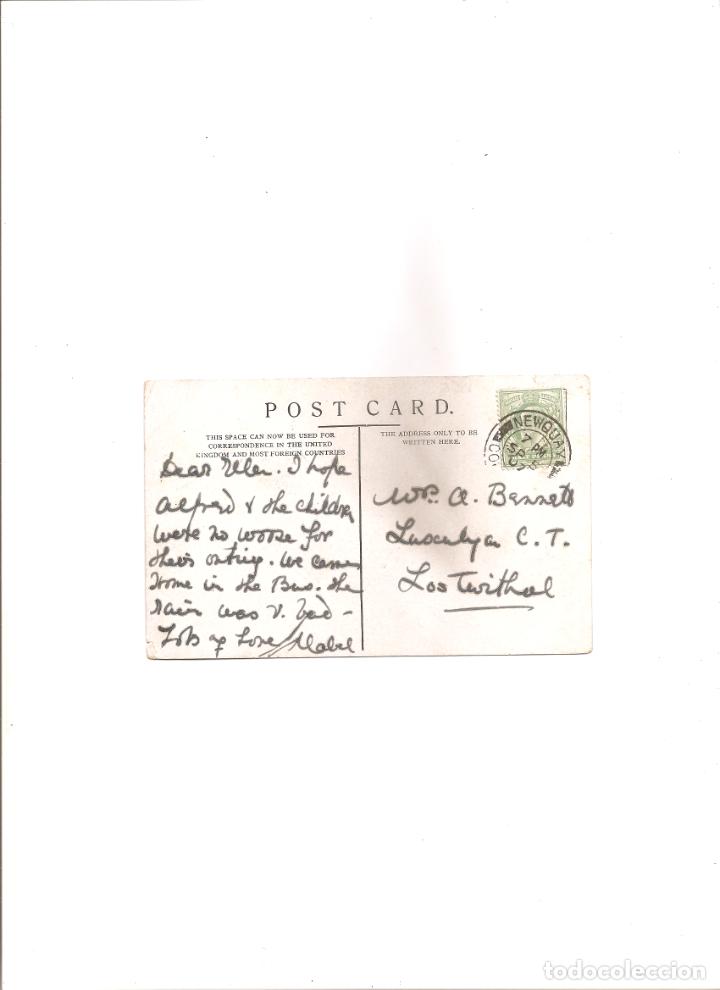 POST CARD.
THIS SPACE CAN NOW BE USED FOR
CORRESPONDENCE IN THE UNITED
KINGDOM AND MOST FOREIGN COUNTRIES
THE ADDRESS ONLY TO BE
WRITTEN HERE.
NEWQUAY
7 PM
SP
07
Dear Ellen. I hope
Alfred & the children
were no worse for
their outing. We came
home in the Bus. the
rain was v. bad -
Lots of Love Mabel
A. Bennett
C. T.
Lostwithal
todocoleccion